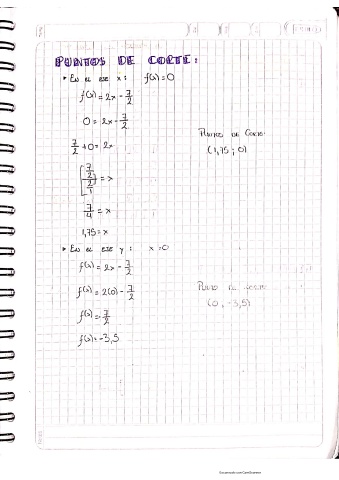 PUNTOS DE CORTE:
• En el eje x: f(x)=0
f(x) = 2x - 7/2
0 = 2x - 7/2
7/2 + 0 = 2x
7/2 / 2/1 = x
7/4 = x
1,75 = x
Punto de corte
(1,75 ; 0)
• En el eje y: x=0
f(x) = 2x - 7/2
f(x) = 2(0) - 7/2
f(x) = -7/2
f(x) = -3,5
Punto de corte
(0, -3,5)